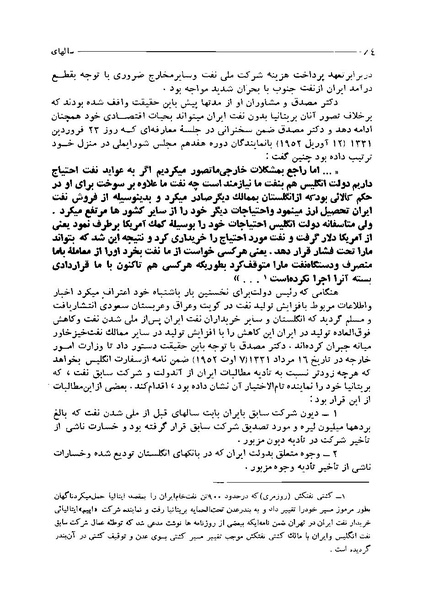 ٤ / ۰ سالهای
دربرابرتعهد پرداخت هزینه شرکت ملی نفت وسایرمخارج ضروری با توجه بقطع
درآمد ایران ازنفت جنوب با بحران شدید مواجه بود ۰
دکتر مصدق و مشاوران او از مدتها پیش باین حقیقت واقف شده بودند که
برخلاف تصور آنان بریتانیا بدون نفت ایران میتواند بحیات اقتصادی خود همچنان
ادامه دهد و دکتر مصدق ضمن سخنرانی در جلسهٔ معارفه‌ای که روز ۲۳ فروردین
۱۳۳۱ (۱۲ آوریل ۱۹۵۲) بانمایندگان دوره هفدهم مجلس شورایملی در منزل خود
ترتیب داده بود چنین گفت :
« ... اما راجع بمشکلات خارجی‌ماتصور میکردیم اگر به عواید نفت احتیاج
داریم دولت انگلیس هم بنفت ما نیازمند است چه نفت ما علاوه بر سوخت برای او در
حکم کالائی بودکه ازانگلستان بممالك دیگرصادر میکرد و بدینوسیله از فروش نفت
ایران تحصیل ارز مینمود واحتیاجات دیگر خود را از سایر کشور ها مرتفع میکرد .
ولی متاسفانه دولت انگلیس احتیاجات خود را بوسیلهٔ کمك آمریکا برطرف نمود یعنی
از آمریکا دلار گرفت و نفت مورد احتیاج را خریداری کرد و نتیجه این شد که بتواند
مارا تحت فشار قرار دهد . یعنی هرکسی خواست از ما نفت بخرد اورا از معاملهٔ باما
منصرف ودستگاه‌نفت مارا متوقف‌کرد بطوریکه هرکسی هم تاکنون با ما قراردادی
بسته آنرا اجرا نکرده‌است ۱ ... »
هنگامی که رئیس دولت‌برای نخستین بار باشتباه خود اعتراف میکرد اخبار
واطلاعات مربوط بافزایش تولید نفت در کویت وعراق وعربستان سعودی انتشاریافت
و مسلم گردید که انگلستان و سایر خریداران نفت ایران پس‌از ملی شدن نفت وکاهش
فوق‌العاده تولید در ایران این کاهش را با افزایش تولید در سایر ممالك نفت‌خیزخاور
میانه جبران کرده‌اند . دکتر مصدق با توجه باین حقیقت دستور داد تا وزارت امور
خارجه در تاریخ ۱۶ مرداد ۱۳۳۱ (۷ اوت ۱۹۵۲) ضمن نامه ازسفارت انگلیس بخواهد
که هرچه زودتر نسبت به تأدیه مطالبات ایران از آندولت و شرکت سابق نفت ، که
بریتانیا خود را نماینده تام‌الاختیار آن نشان داده بود ، اقدام‌کند . بعضی ازاین‌مطالبات
از این قرار بود :
۱ ــ دیون شرکت سابق بایران بابت سالهای قبل از ملی شدن نفت که بالغ
بردهها میلیون لیره و مورد تصدیق شرکت سابق قرار گرفته بود و خسارت ناشی از
تأخیر شرکت در تأدیه دیون مزبور .
۲ ــ وجوه متعلق بدولت ایران که در بانکهای انگلستان تودیع شده وخسارات
ناشی از تأخیر تأدیه وجوه مزبور .
۱ــ کشتی نفتکش (روزمری)که درحدود ۹۰۰تن نفت‌خام‌ایران را بمقصد ایتالیا حمل‌میکردناگهان
بطور مرموز مسیر خودرا تغییر داد و به بندرعدن تحت‌الحمایه بریتانیا رفت و نماینده شرکت «اپیم»ایتالیائی
خریدار نفت ایران در تهران ضمن نامه‌ایکه ببعضی از روزنامه ها نوشت مدعی شد که توطئه عمال شرکت سابق
نفت انگلیس وایران با مالك کشتی نفتکش موجب تغییر مسیر کشتی بسوی عدن و توقیف کشتی در آن‌بندر
گردیده است .